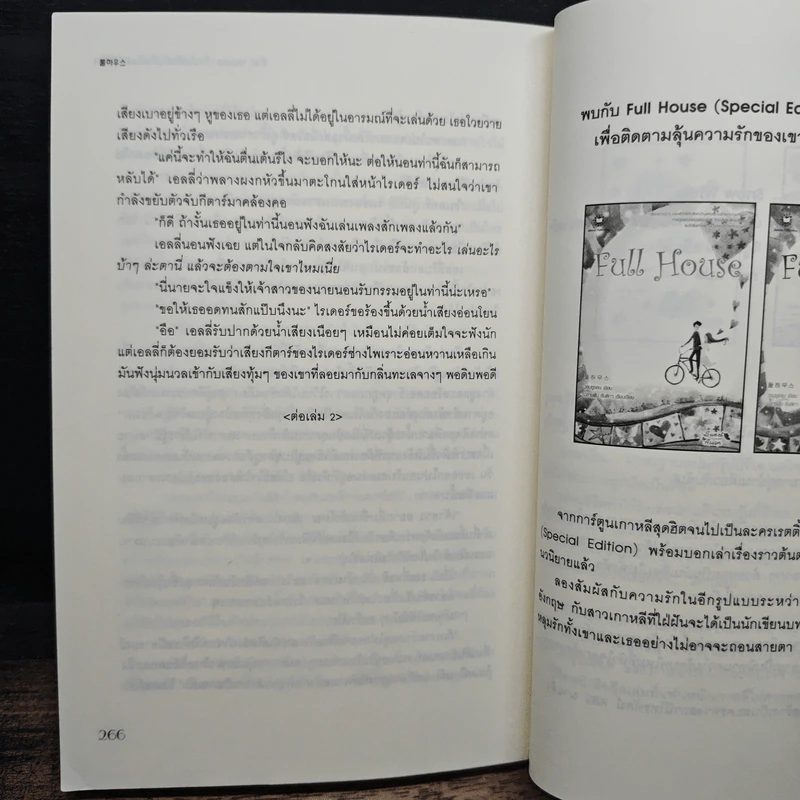 풀하우스
เสียงเบาอยู่ข้างๆ หูของเธอ แต่เอลลี่ไม่ได้อยู่ในอารมณ์ที่จะเล่นด้วย เธอโวยวาย
เสียงดังไปทั่วเรือ
"แค่นี้จะทำให้ฉันตื่นเต้นรึไง จะบอกให้นะ ต่อให้นอนท่านี้ฉันก็สามารถ
หลับได้" เอลลี่ว่าพลางผงกหัวขึ้นมาตะโกนใส่หน้าไรเดอร์ ไม่สนใจว่าเขา
กำลังขยับตัวจับกีตาร์มาคล้องคอ
"ก็ดี ถ้างั้นเธออยู่ในท่านี้นอนฟังฉันเล่นเพลงสักเพลงแล้วกัน"
เอลลี่นอนฟังเฉย แต่ในใจกลับคิดสงสัยว่าไรเดอร์จะทำอะไร เล่นอะไร
บ้าๆ ล่ะตานี่ แล้วจะต้องตามใจเขาไหมเนี่ย
"นี่นายจะใจแข็งให้เจ้าสาวของนายนอนรับกรรมอยู่ในท่านี้น่ะเหรอ"
"ขอให้เธออดทนสักแป๊บนึงนะ" ไรเดอร์ขอร้องขึ้นด้วยน้ำเสียงอ่อนโยน
"อือ" เอลลี่รับปากด้วยน้ำเสียงเนือยๆ เหมือนไม่ค่อยเต็มใจจะฟังนัก
แต่เอลลี่ก็ต้องยอมรับว่าเสียงกีตาร์ของไรเดอร์ช่างไพเราะอ่อนหวานเหลือเกิน
มันฟังนุ่มนวลเข้ากับเสียงทุ้มๆ ของเขาที่ลอยมากับกลิ่นทะเลจางๆ พอดิบพอดี
<ต่อเล่ม 2>
266
พบกับ Full House (Special Ed
เพื่อติดตามลุ้นความรักของเขา
Full House
풀하우스
จากการ์ตูนเกาหลีสุดฮิตจนไปเป็นละครเรตติ้
(Special Edition) พร้อมบอกเล่าเรื่องราวต้นต
นวนิยายแล้ว
ลองสัมผัสกับความรักในอีกรูปแบบระหว่า
อังกฤษ กับสาวเกาหลีที่ใฝ่ฝันจะได้เป็นนักเขียนบท
หลุมรักทั้งเขาและเธออย่างไม่อาจจะถอนสายตา